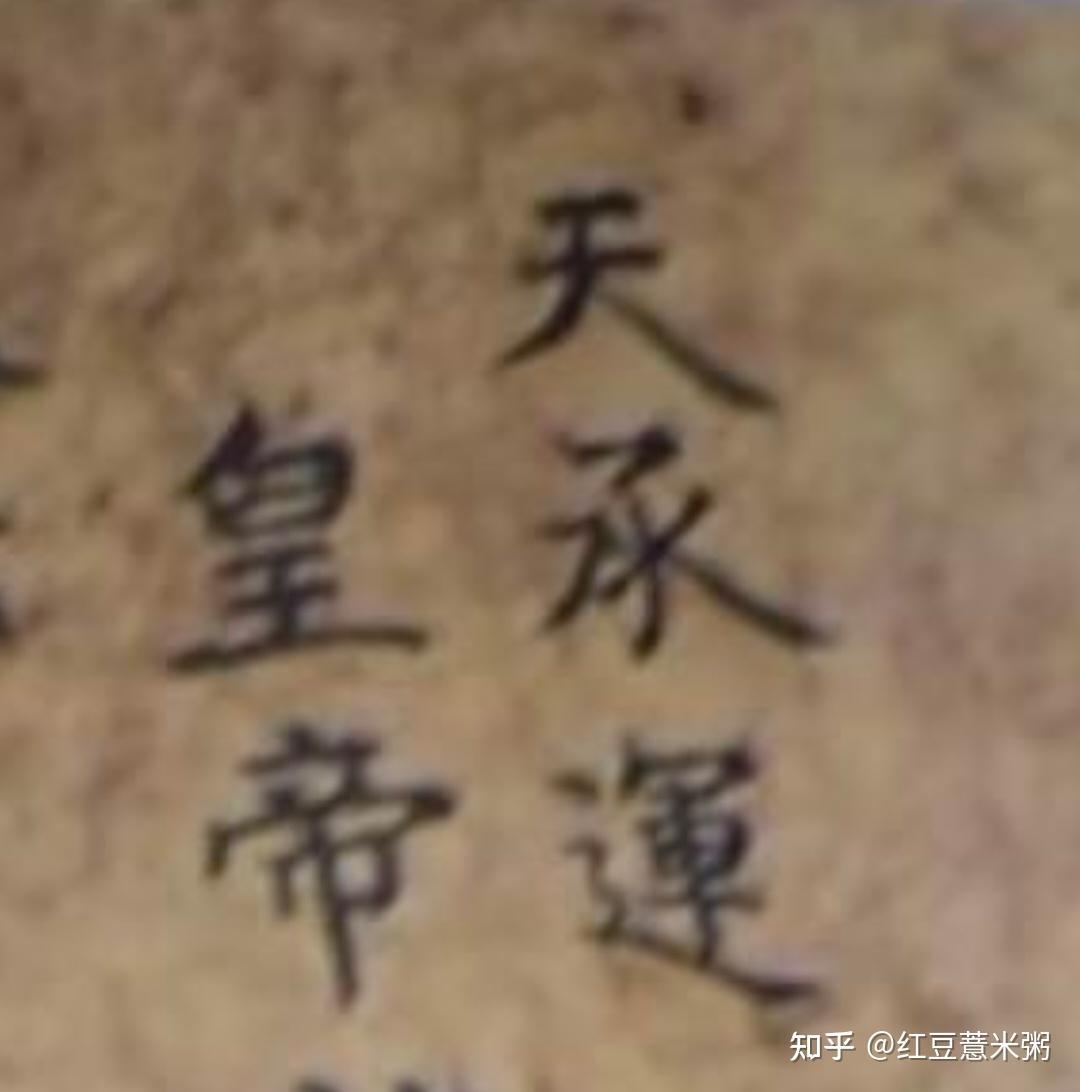 天承運
皇帝
知乎 @红豆薏米粥